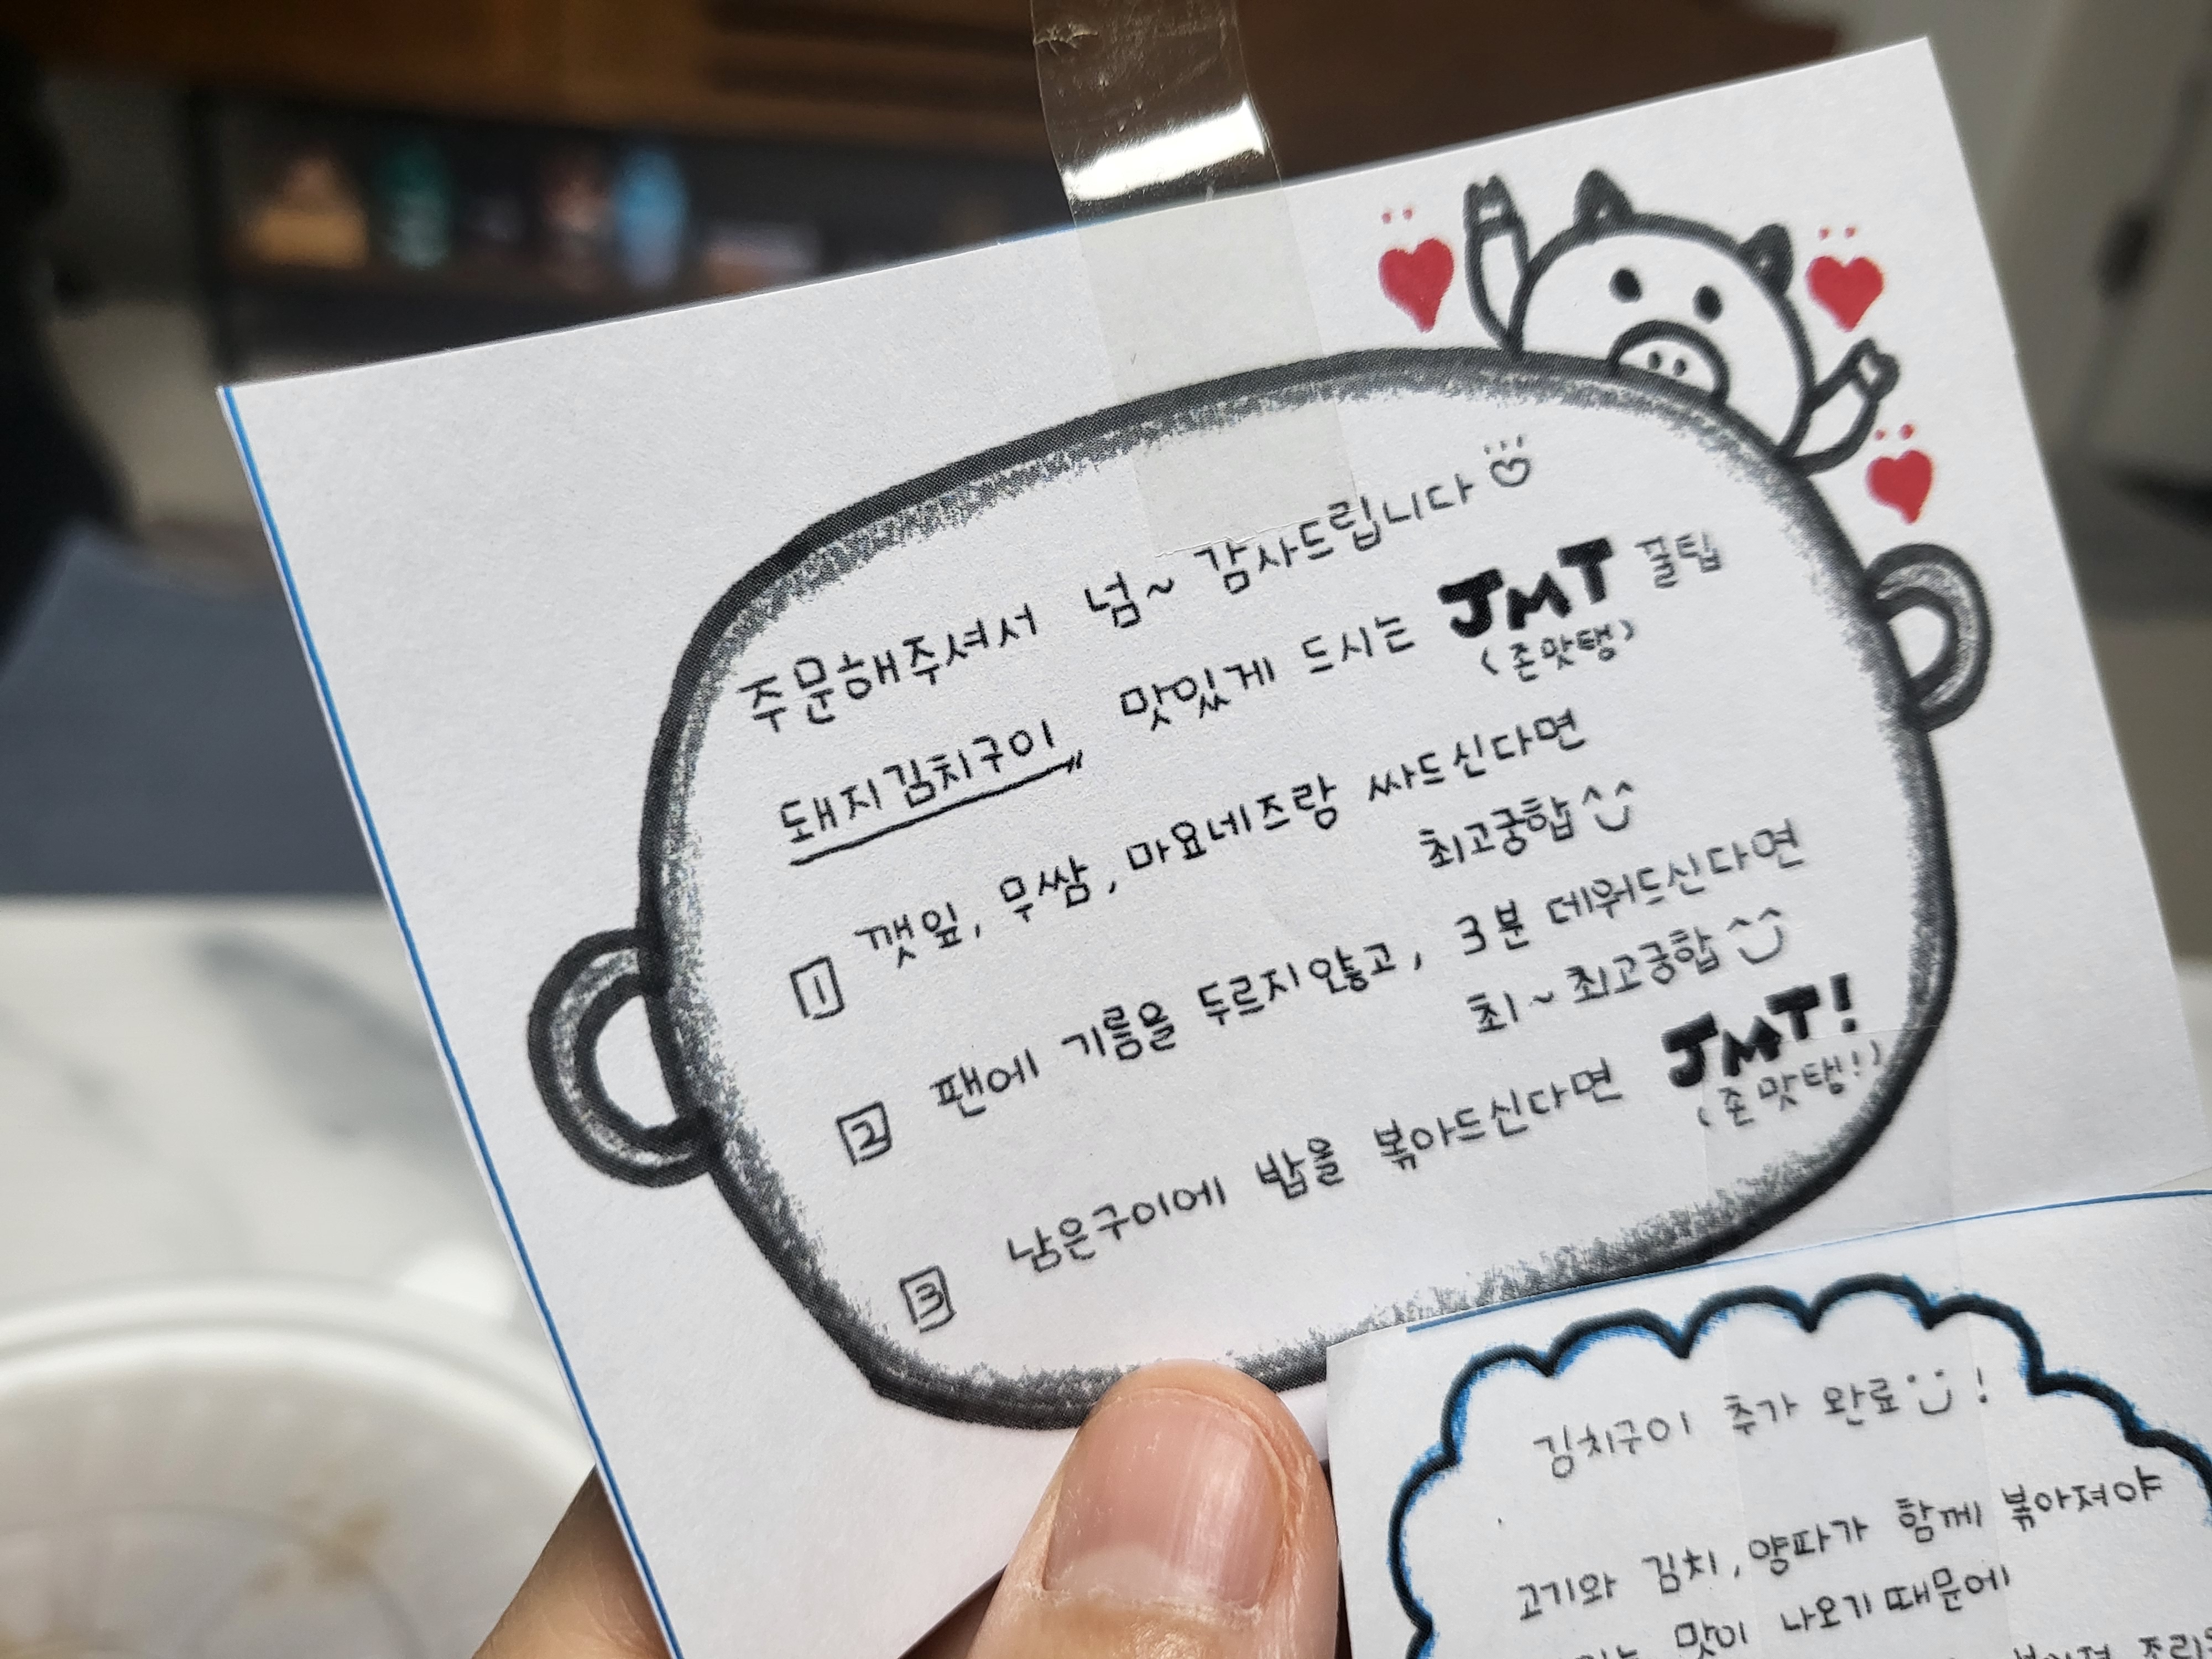 주문해주셔서 넘~ 감사드립니다
돼지김치구이, 맛있게 드시는 JMT 꿀팁
(존맛탱)
1 깻잎, 무쌈, 마요네즈랑 싸드신다면
최고궁합^^
2 팬에 기름을 두르지않고, 3분 데워드신다면
최~최고궁합^^
3 남은구이에 밥을 볶아드신다면 JMT!
(존맛탱!)
김치구이 추가 완료!
고기와 김치, 양파가 함께 볶아져야
맛이 나오기때문에